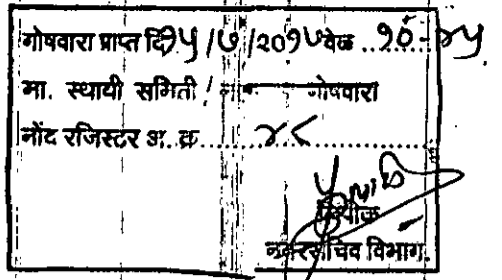 गोषवारा प्राप्त दि १५/७/२०१७ वेळ ..१०-४५
मा. स्थायी समिती / गोषवारा
नोंद रजिस्टर अ. क्र........४८........
लिपीक
नगरसचिव विभाग.